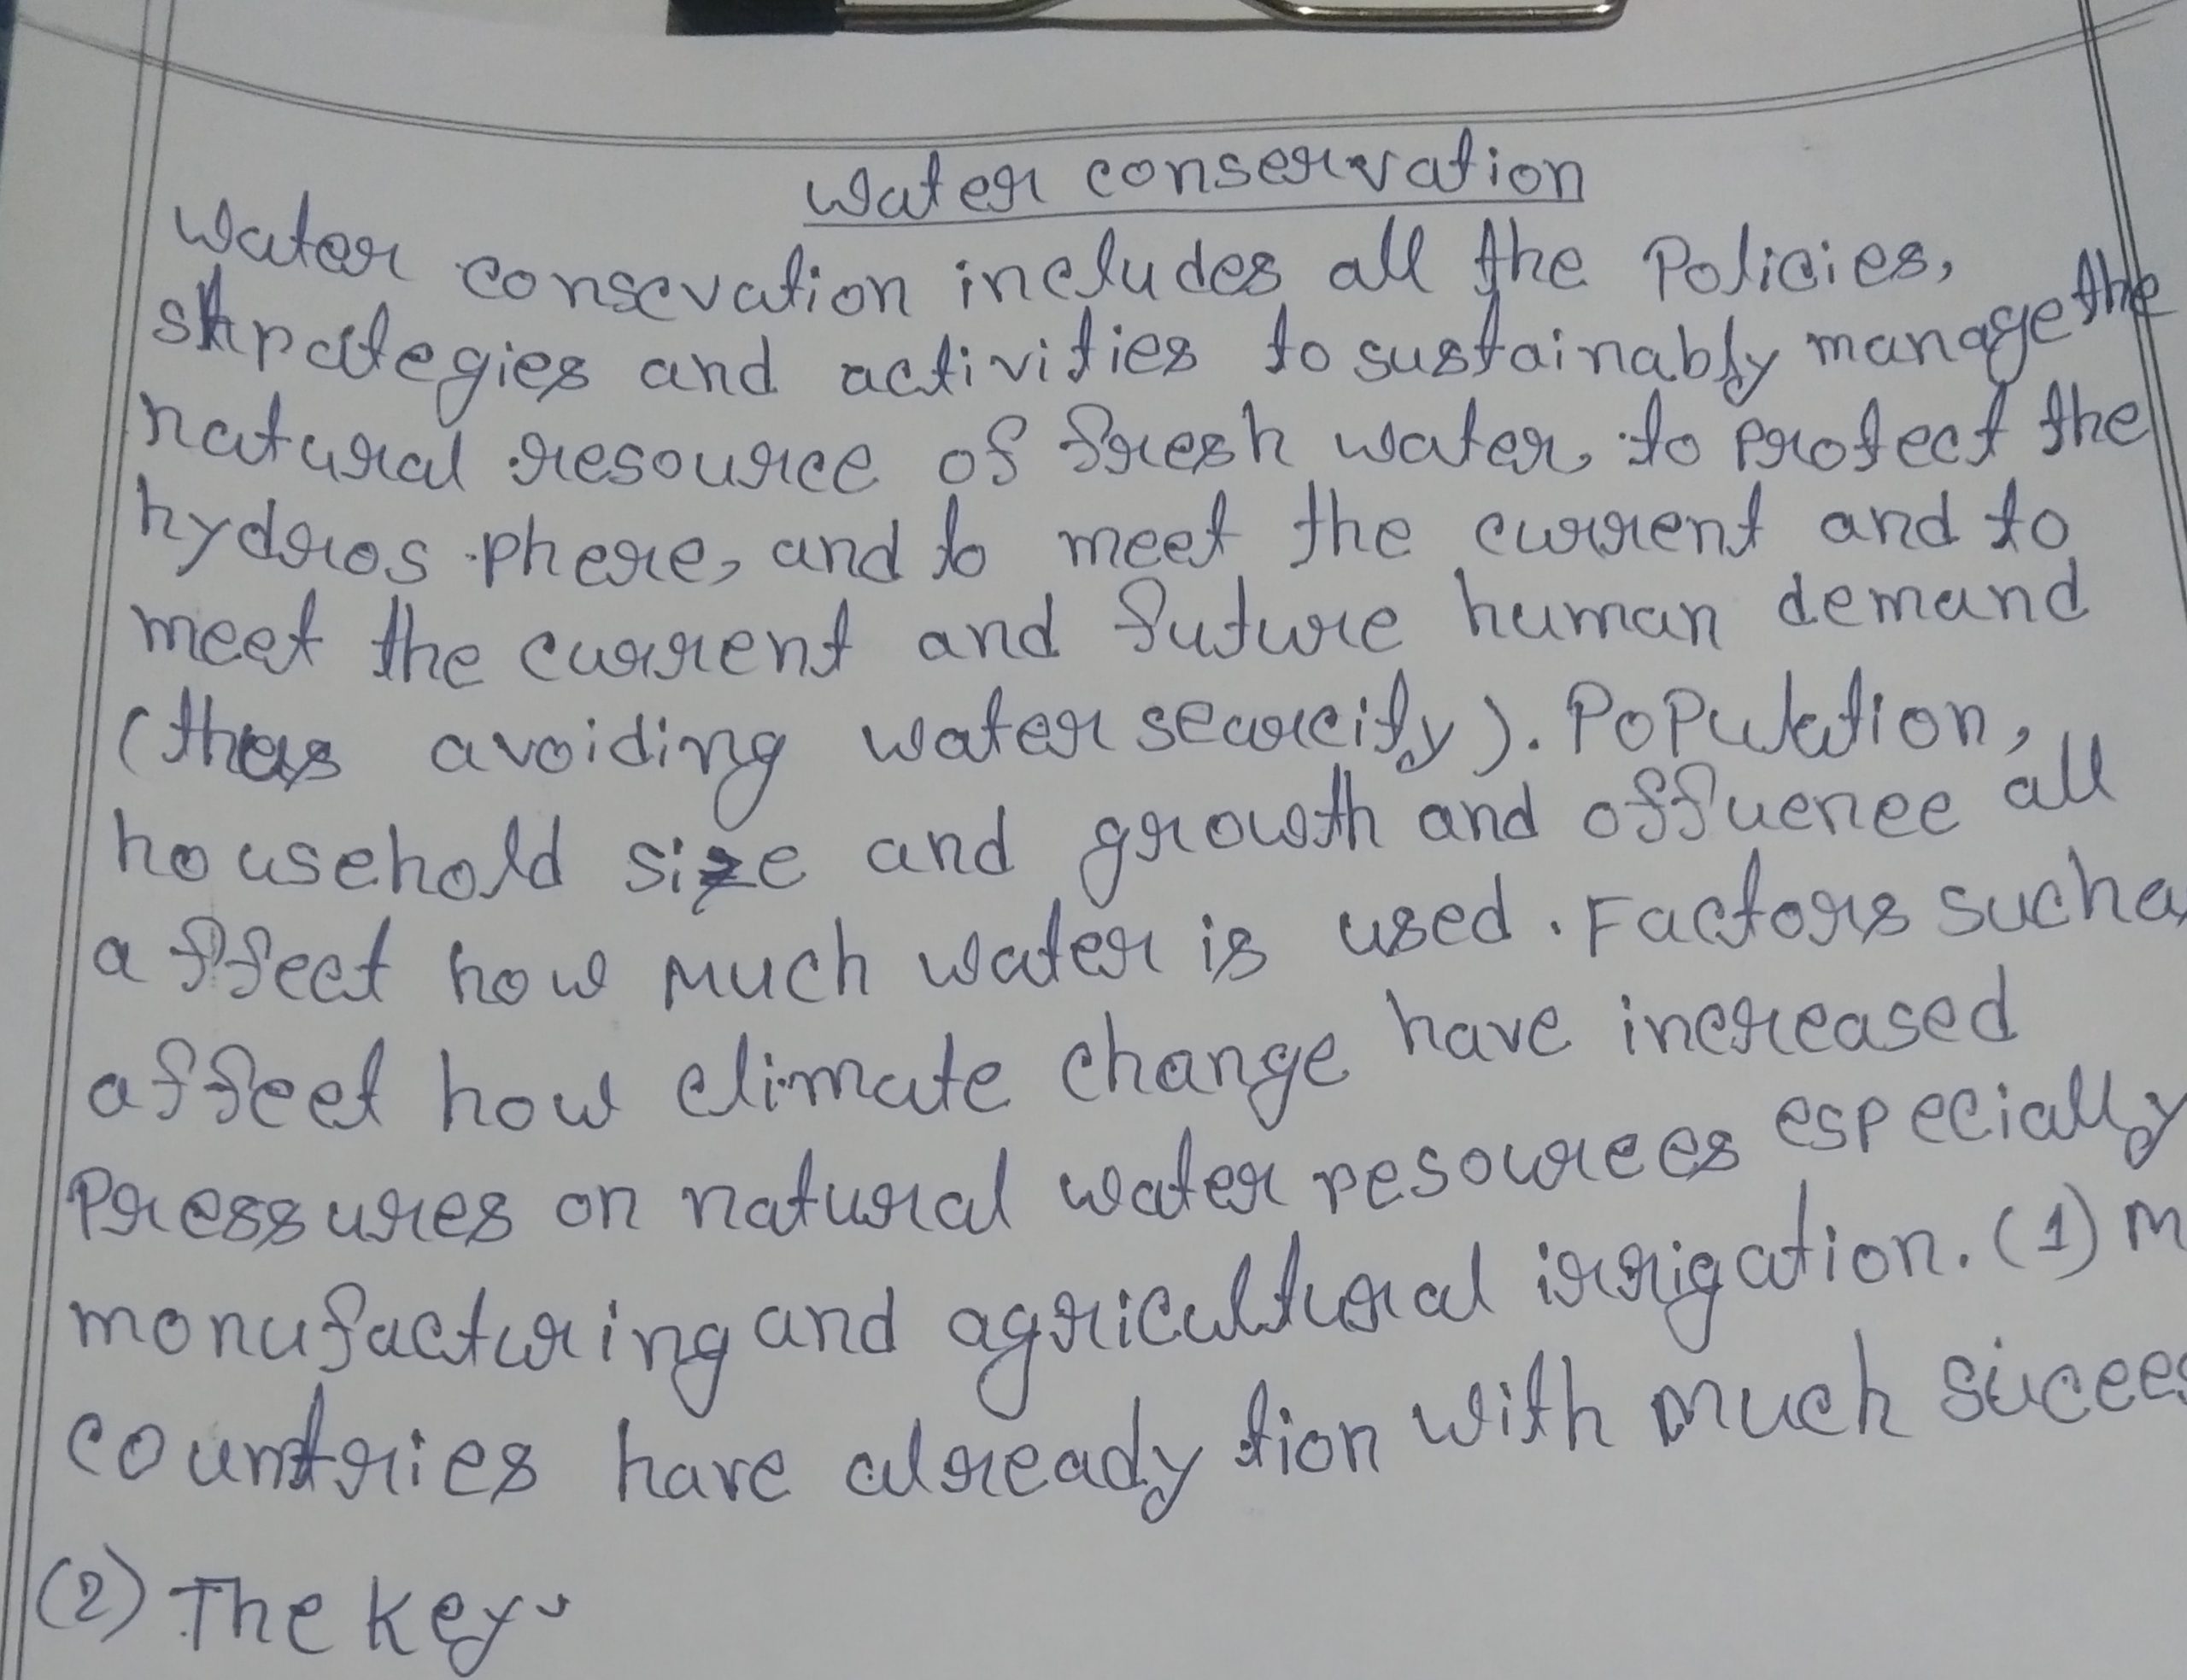 Water conservation
Water consevation includes all the Policies,
strategies and activities to sustainably manage the
natural resource of fresh water, to protect the
hydros phere, and to meet the current and to
meet the current and future human demand
(thus avoiding water scarcity). Population,
household size and growth and offuence all
affect how much water is used. Factors such a
affect how climate change have increased
Pressures on natural water resources especially
monufacturing and agricultural irrigation. (1) M
countries have already tion with much
(2) The key